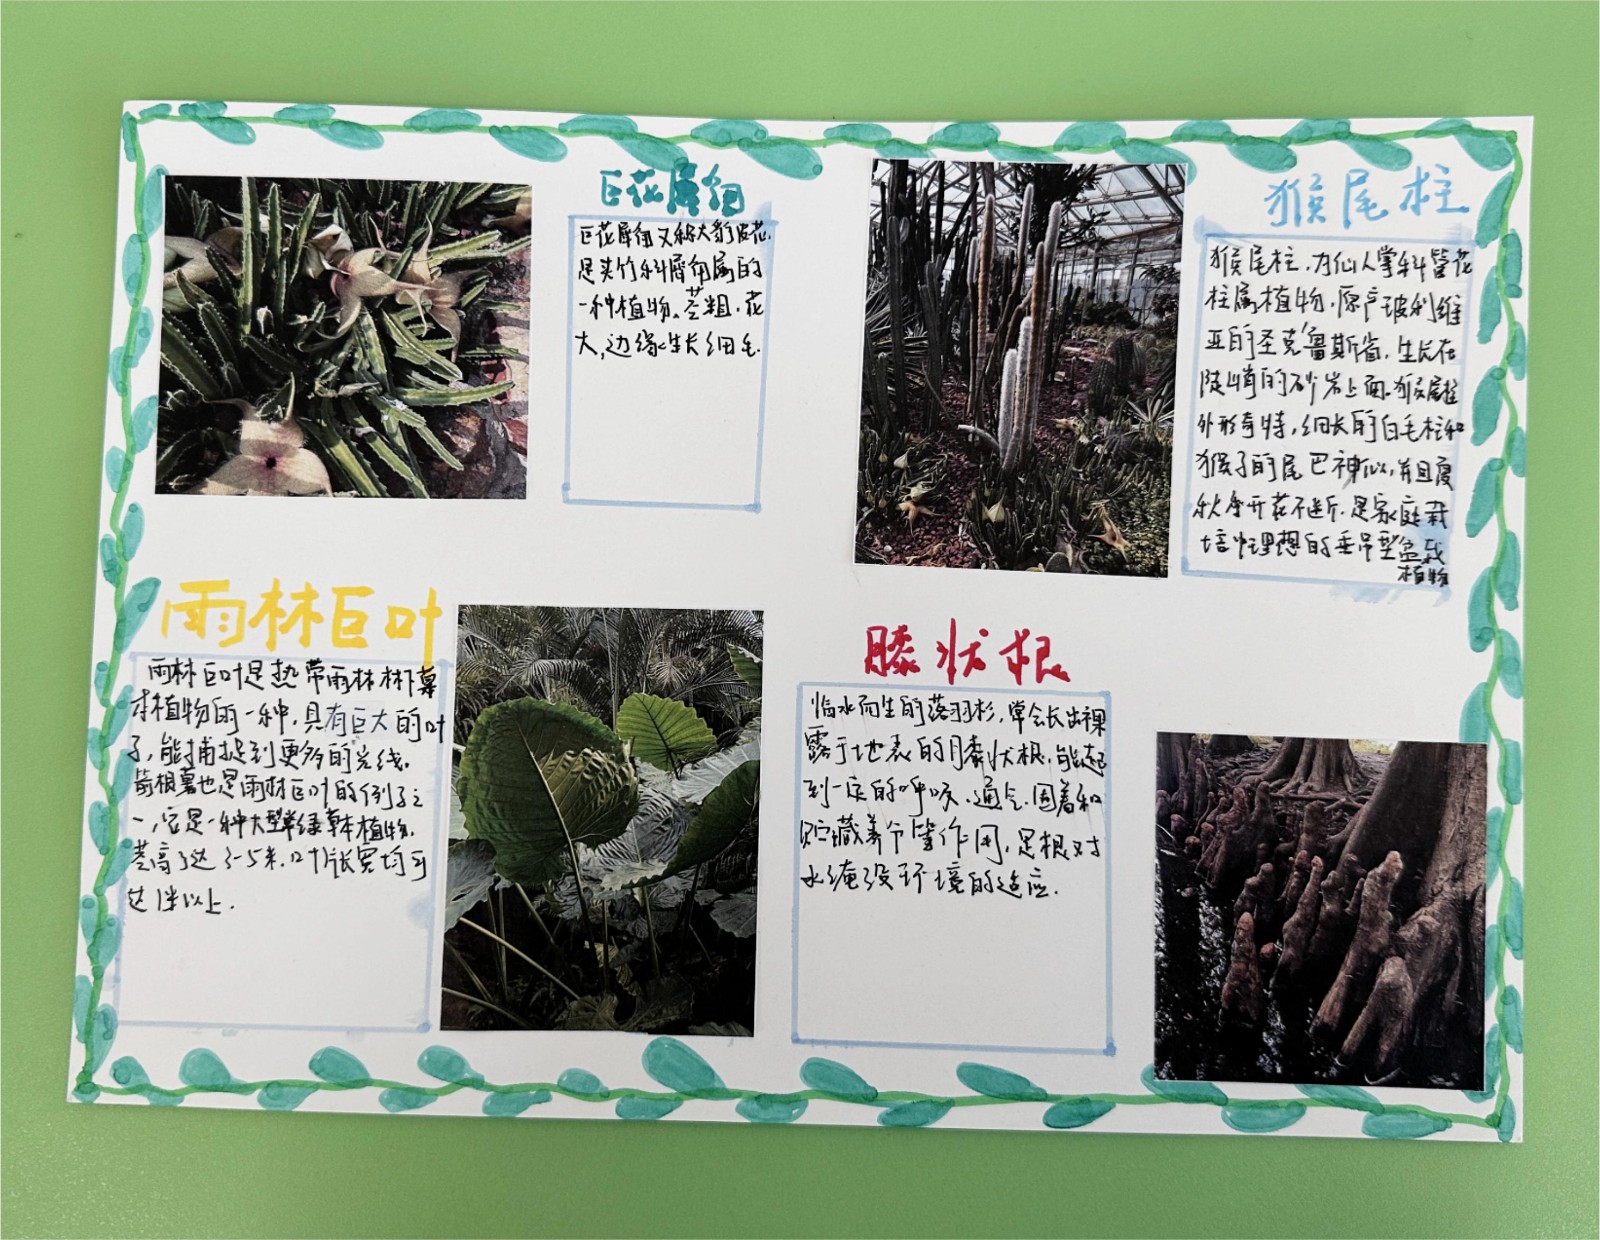 巨花犀角
巨花犀角又称大豹皮花,
是夹竹科犀角属的
一种植物。茎粗,花
大,边缘生长细毛.
猴尾柱
猴尾柱,为仙人掌科管花
柱属植物,原产玻利维
亚的圣克鲁斯省,生长在
陡峭的砂岩上面。猴尾柱
外形奇特,细长的白毛柱和
猴子的尾巴神似,并且夏
秋季开花不断,是家庭栽
培中理想的垂吊型盆栽
植物
雨林巨叶
雨林巨叶是热带雨林林下草
本植物的一种,具有巨大的叶
子,能捕捉到更多的光线。
箭根薯也是雨林巨叶的例子之
一,它是一种大型常绿草本植物,
茎高可达3-5米,叶片长宽均可
达1米以上.
膝状根
临水而生的落羽杉,常会长出裸
露于地表的膝状根,能起
到一定的呼吸、通气、固着和
贮藏养分等作用,是根对
水淹没环境的适应.